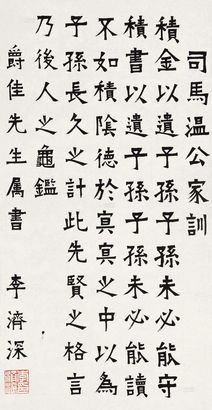 司馬温公家訓
積金以遺子孫子孫未必能守
積書以遺子孫子孫未必能讀
不如積陰德於冥冥之中以為
子孫長久之計此先賢之格言
乃後人之龜鑑
爵佳先生属書
李濟深